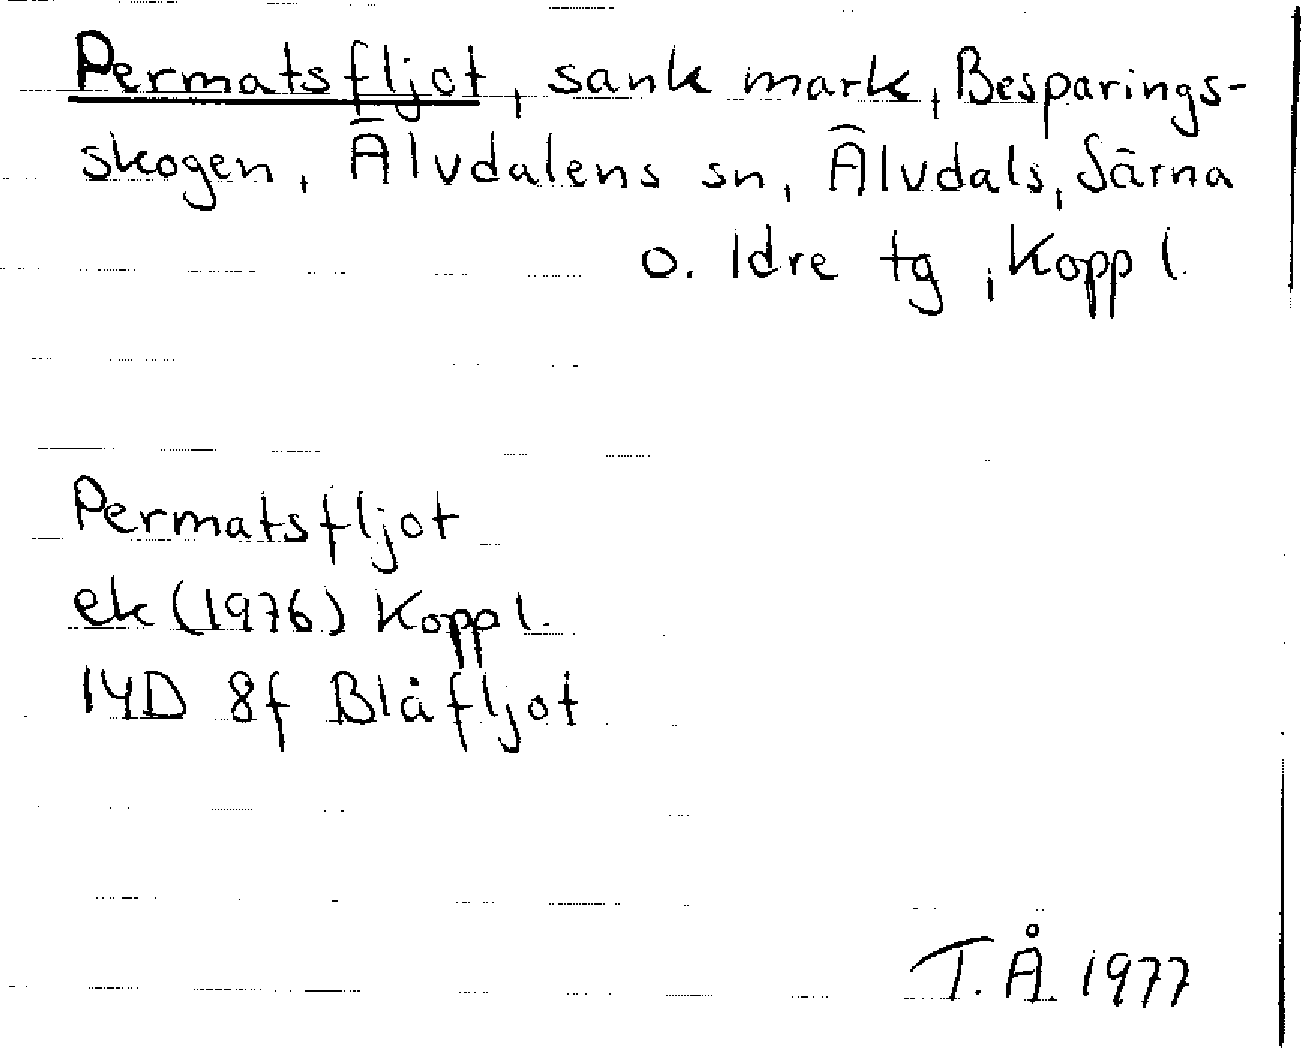 Permatsfljot, sank mark, Besparings-
skogen, Älvdalens sn, Älvdals, Särna
o. Idre tg, Kopp l.
Permatsfljot
ek (1976) Kopp l.
14D 8f Blåfljot
T.Å. 1977